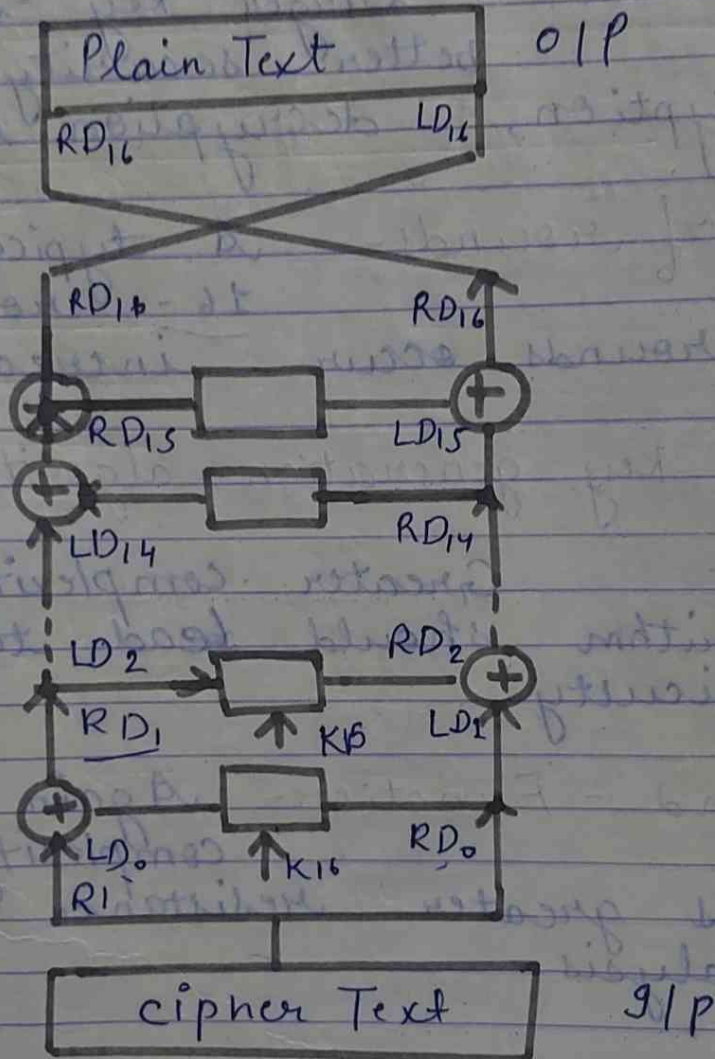 Plain Text O/P
RD16 LD16
RD16 RD16
RD15 LD15
LD14 RD14
LD2 RD2
RD1 K15 LD1
LD0 RD0
R1 K16
cipher Text I/P